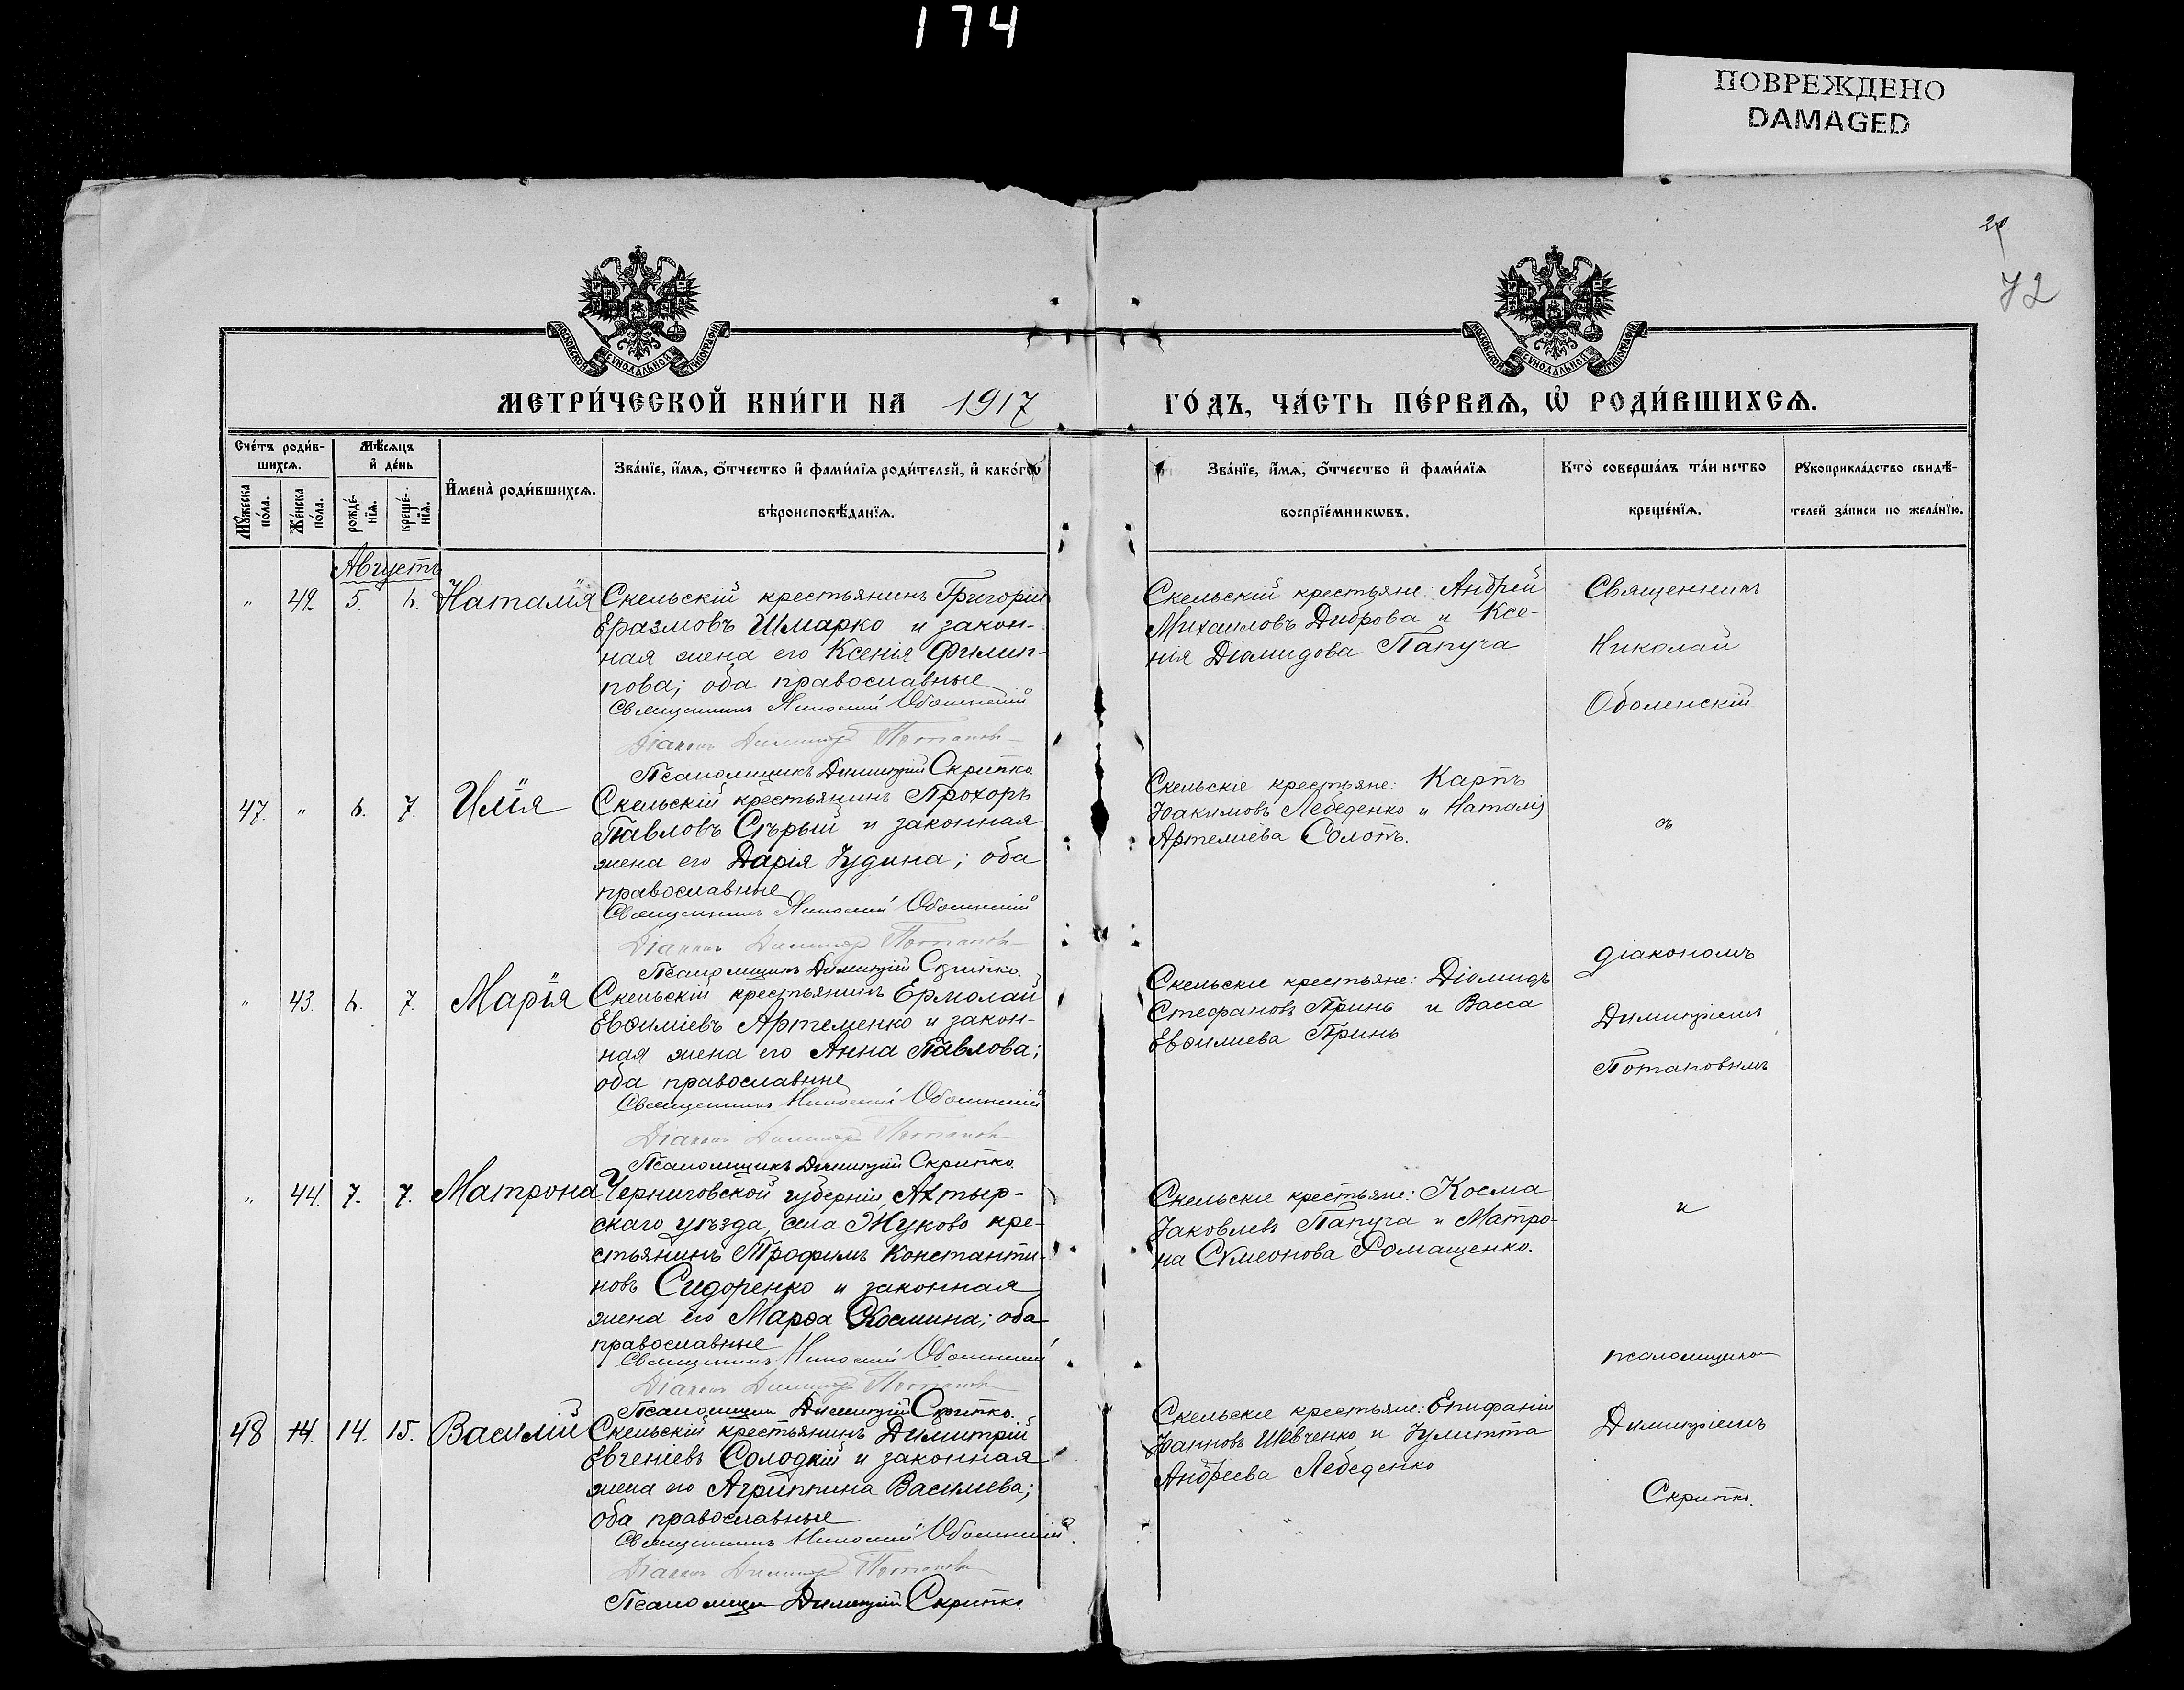 174
ПОВРЕЖДЕНО
DAMAGED
72
МОСКОВСКОЙ СѴНОДАЛЬНОЙ ТИПОГРАФІИ
МОСКОВСКОЙ СѴНОДАЛЬНОЙ ТИПОГРАФІИ
МЕТРИ́ЧЕСКОЙ КНИ́ГИ НА 1917 ГО́ДЪ, ЧА́СТЬ ПЕ́РВАѦ, Ѡ РОДИ́ВШИХСѦ.
Сче́тъ роди́в-
шихсѧ.
Мꙋ́жеска по́ла.
Же́нска по́ла.
Мѣ́сѧцъ
и҆ де́нь
рожде́-нїѧ.
креще́-нїѧ.
И҆мена̀ роди́вшихсѧ.
Зва́нїе, и҆́мѧ, ѻ҆́тчество и҆ фами́лїѧ роди́телей, и҆ како́гѡ
вѣроисповѣ́данїѧ.
Зва́нїе, и҆́мѧ, ѻ҆́тчество и҆ фами́лїѧ
воспрїе́мникѡвъ.
Кто̀ соверша́лъ та́инство
креще́нїѧ.
Рꙋкоприкла́дство свидѣ́-
телей за́писи по жела́нїю.
Августъ
" 42 5. 6. Наталія
Скельскій крестьянинъ Григорій
Еразмовъ Шмарко и закон-
ная жена его Ксенія Филип-
пова; оба православные
Священникъ Николай Оболенскій
Діаконъ Димитрій Потаповъ
Псаломщикъ Димитрій Скрипко.
Скельскій крестьяне: Андрей
Михаиловъ Диброва и Ксе-
нія Діомидова Папуча
Священникъ
Николай
Оболенскій
47. " 6. 7. Илія
Скельскій крестьянинъ Прохоръ
Павловъ Сѣрый и законная
жена его Дарія Іудина; оба
православные
Священникъ Николай Оболенскій
Діаконъ Димитрій Потаповъ
Псаломщикъ Димитрій Скрипко.
Скельскіе крестьяне: Карпъ
Іоакимовъ Лебеденко и Наталія
Артеміева Солопъ.
съ
" 43. 6. 7. Марія
Скельскій крестьянинъ Ермолай
Евѳиміевъ Артеменко и закон-
ная жена его Анна Павлова;
оба православные
Священникъ Николай Оболенскій
Діаконъ Димитрій Потаповъ
Псаломщикъ Димитрій Скрипко.
Скельскіе крестьяне: Діомидъ
Стефановъ Принь и Васса
Евѳиміева Принь
діакономъ
Димитріемъ
Потаповымъ
" 44. 7. 7. Матрона
Черниговской губерніи, Ахтыр-
скаго уѣзда, села Жуково кре-
стьянинъ Трофимъ Константи-
новъ Сидоренко и законная
жена его Марѳа Космина; оба
православные
Священникъ Николай Оболенскій
Діаконъ Димитрій Потаповъ
Псаломщикъ Димитрій Скрипко.
Скельскіе крестьяне: Косма
Іаковлевъ Папуча и Матро-
на Сѵмеонова Ромащенко.
и
псаломщикомъ
48 14. 14. 15. Василій
Скельскій крестьянинъ Димитрій
Евгеніевъ Солодкій и законная
жена его Агриппина Васильева;
оба православные
Священникъ Николай Оболенскій
Діаконъ Димитрій Потаповъ
Псаломщикъ Димитрій Скрипко
Скельскіе крестьяне: Епифаній
Іоанновъ Шевченко и Іулитта
Андреева Лебеденко
Димитріемъ
Скрипко.